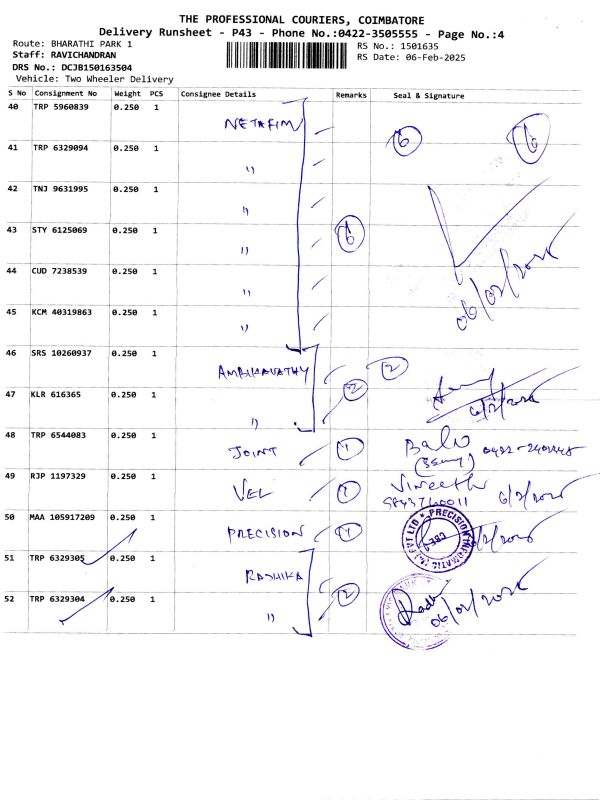 THE PROFESSIONAL COURIERS, COIMBATORE
Delivery Runsheet - P43 - Phone No.:0422-3505555 - Page No.:4
Route: BHARATHI PARK 1
RS No.: 1501635
Staff: RAVICHANDRAN
RS Date: 06-Feb-2025
DRS No.: DCJB150163504
Vehicle: Two Wheeler Delivery
S No Consignment No Weight PCS Consignee Details Remarks Seal & Signature
40 TRP 5960839 0.250 1 NETAFIM 6 6
41 TRP 6329094 0.250 1 "
42 TNJ 9631995 0.250 1 "
43 STY 6125069 0.250 1 " 6
44 CUD 7238539 0.250 1 " 06/02/2025
45 KCM 40319863 0.250 1 "
46 SRS 10260937 0.250 1 2
47 KLR 616365 0.250 1 " 2 6/2/2025
48 TRP 6544083 0.250 1 JOINT 1 Balu
49 RJP 1197329 0.250 1 VEL 1 Vineeth 6/2/2025
50 MAA 105917209 0.250 1 PRECISION 1 PRECISION INFOMATIC (M) PVT LTD 6/2/2025
51 TRP 6329305 0.250 1 RADHIKA
52 TRP 6329304 0.250 1 " 2 06/02/2025